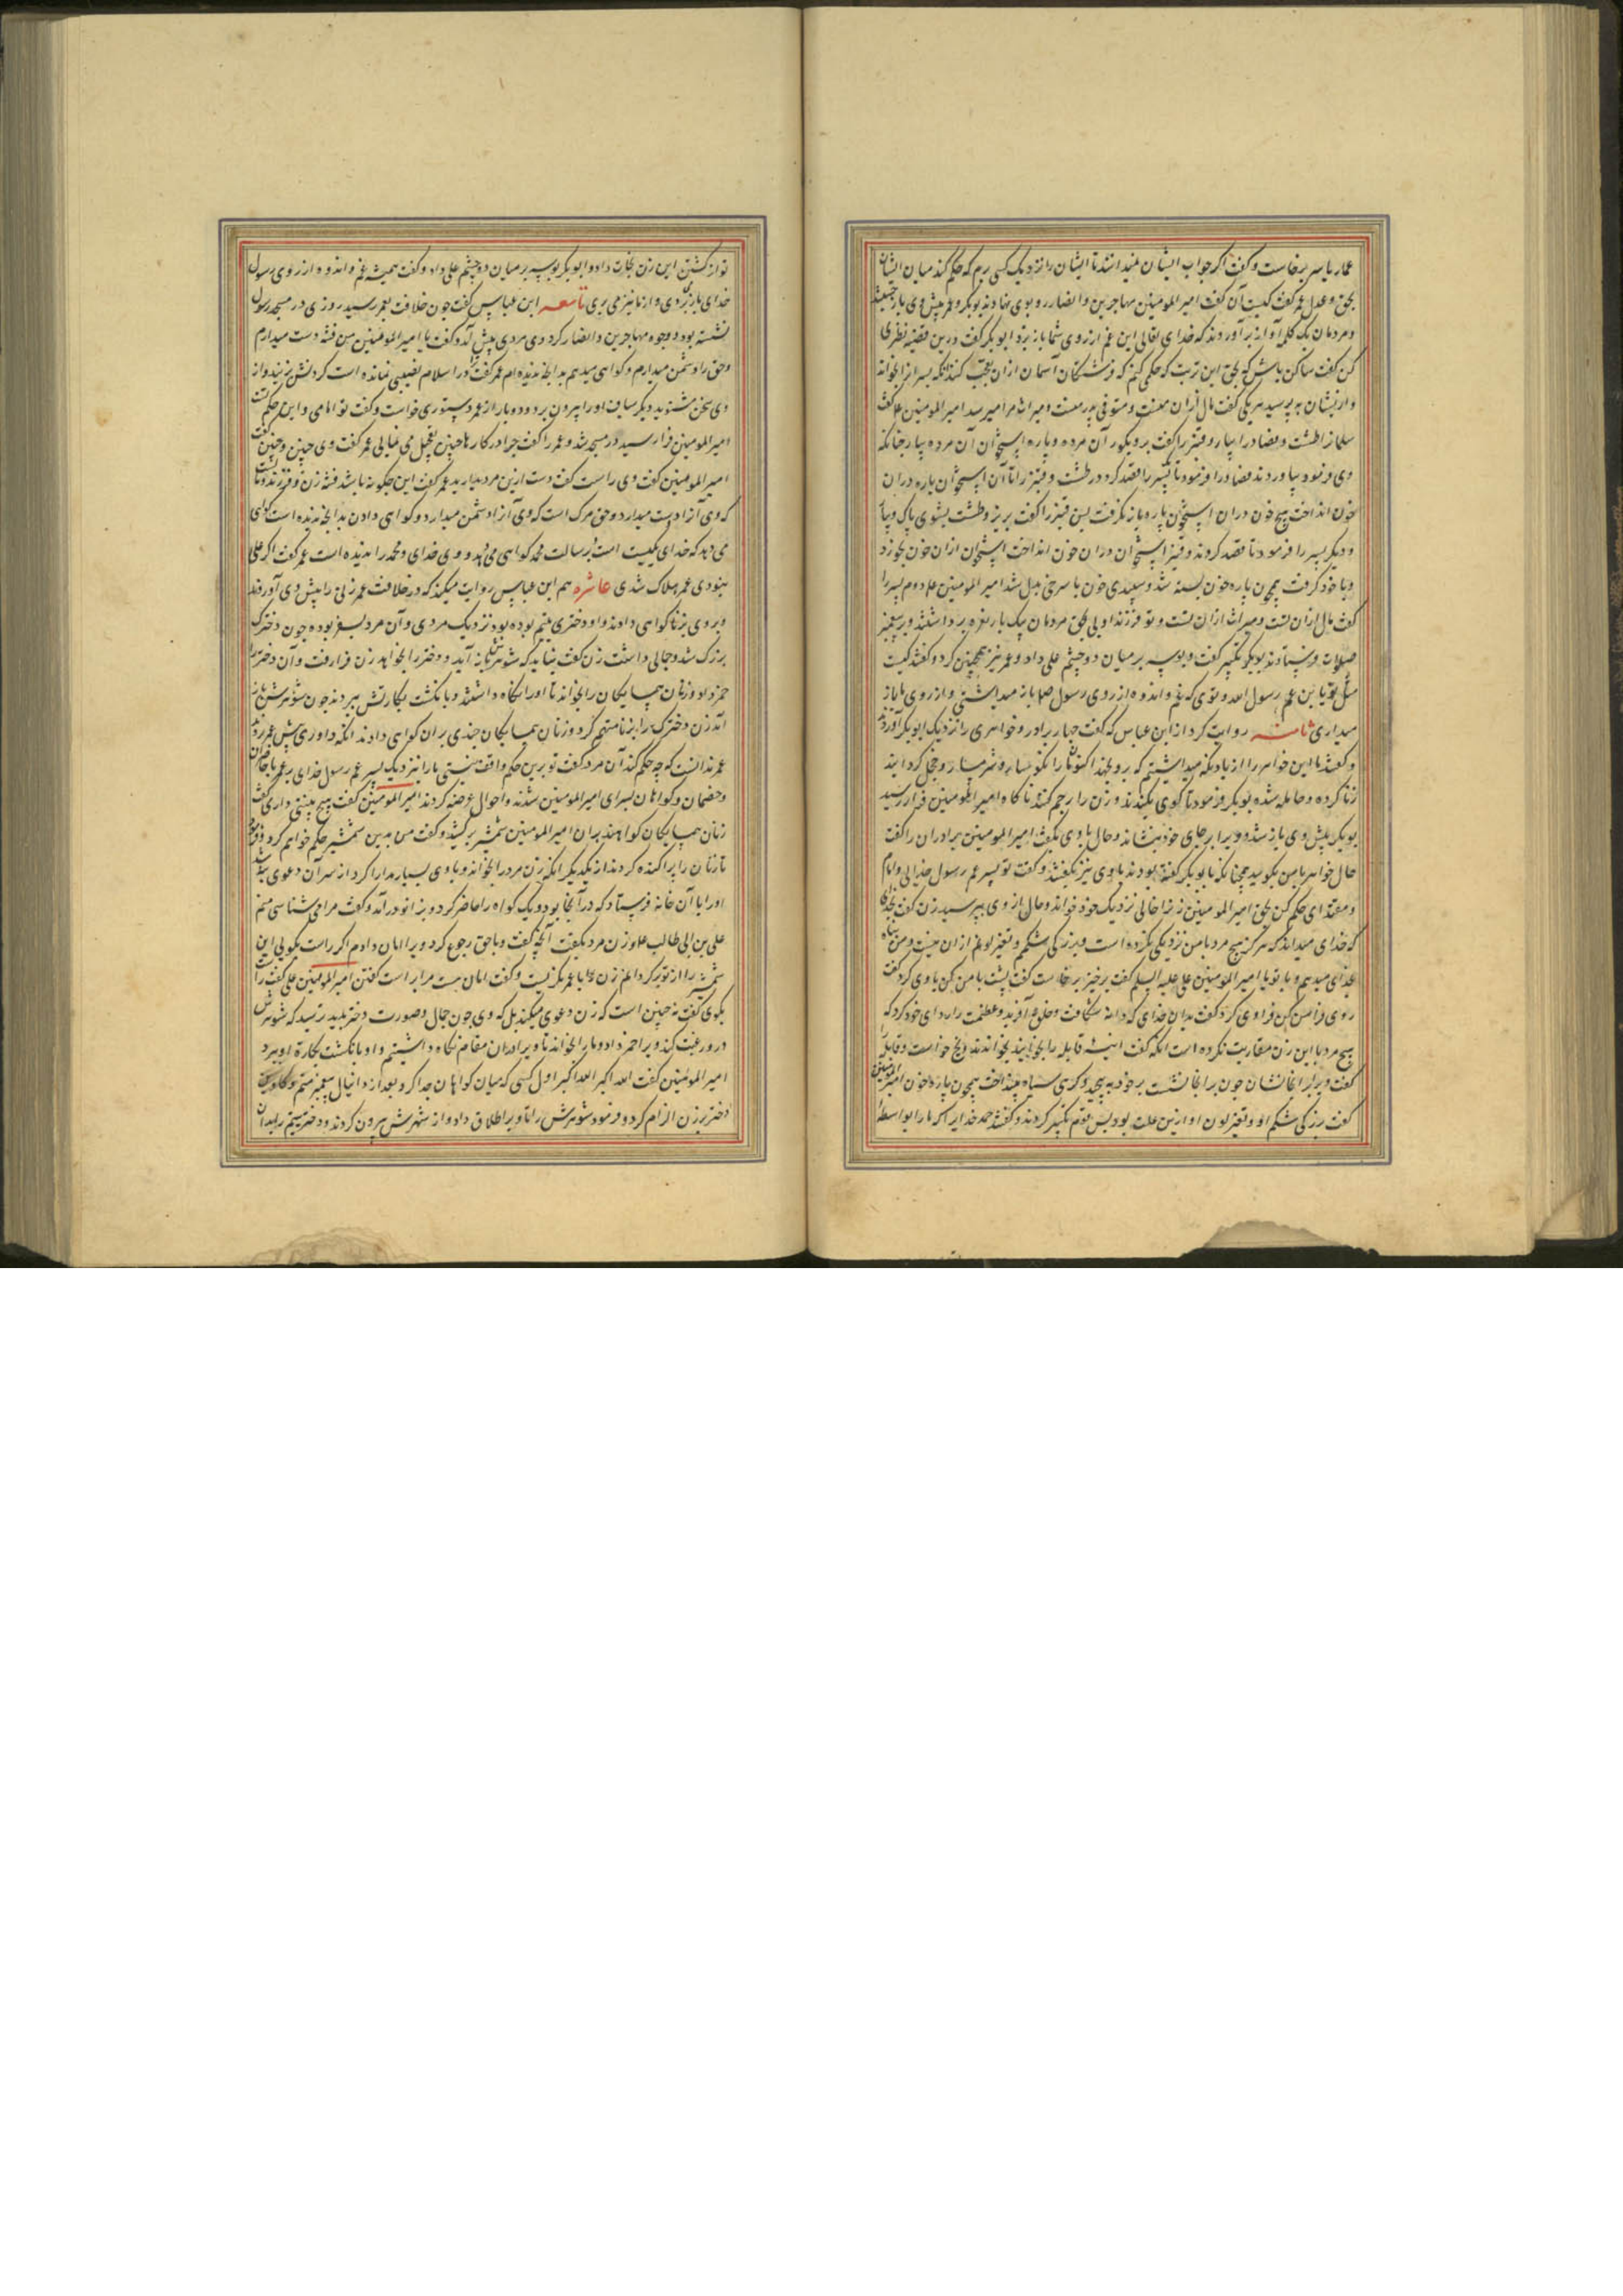 عمار یاسر برخاست و کفت اکر جواب ایشان نمیدانند تا ایشان را نزدیک کسی برم که حکم کند میان ایشان
بحق و عدل عمر کفت کیست آن کفت امیر المومنین مهاجرین و انصار رو بوی نهادند بوبکر و عمر پیش وی باز
و مردمان بیک کلمه آواز برآوردند که خدای تعالی این غم از روی شما باز برد ابوبکر کفت درین قضیه نظری
کن کفت ساکن باش که بحق این تربت که حکمی کنم که فرشتکان آسمان ازان تعجب کنند
امیر المومنین کفت
سلمان را طشت و فصاد را بیار و قنبر را کفت برو بکور آن مرده و پاره استخوان آن مرده بیار چنانکه
وی فرمود بیاوردند فصاد را فرمود تا پسر را فصد کرد در طشت و قنبر را تا آن استخوان پاره دران
خون انداخت هیچ خون دران استخوان پاره باز نکرفت پس قنبر را کفت بریز و طشت بشوی پاک و بیا
و دیکر پسر را فرمود تا فصد کردند و قنبر استخوان دران خون انداخت استخوان ازان خون بخورد
و با خود کرفت همچون پاره خون بسته شد و سپیدی خون با سرخی بدل شد امیر المومنین دوم پسر را
کفت مال ازان تست و میراث ازان تست و تو فرزند اویی بحق مردمان بیک بار نعره برداشتند و بر پیغمبر
صلوات فرستادند بوبکر تکبیر کفت و بوسه بر میان دو چشم علی داد و عمر نیز همچنین کرد و کفتند کیست
مثل تو یا بن عم رسول الله و توی که غم و اندوه از روی رسول صلی باز میداشتی و از روی ما باز
میداری ثامنه روایت کرد از ابن عباس که کفت چهار برادر و خواهری را نزدیک ابوبکر آوردند
و کفتند ما این خواهر را از باد نکه میداشتیم که برو نجهد اکنون ما را نکونسار و شرمسار و خجل کردانید
زنا کرده و حامله شده بوبکر فرمود تا کوی بکندند و زن را رجم کنند ناکاه امیر المومنین فرا رسید
بوبکر پیش وی باز شد و ویرا بر جای خود بنشاند و حال با وی بکفت امیر المومنین برادران را کفت
حال خواهر با من بکویید همچنانکه با بوبکر کفته بودند با وی نیز بکفتند و کفت تو پسر عم رسول خدایی و امام
و مقتدای حکم کن بحق امیر المومنین زن را خالی نزدیک خود خواند و حال از وی بپرسید زن کفت بخدای
که خدای میداند که هرکز هیچ مرد با من نزدیکی نکرده است و بزرکی شکم و تغیر لونم ازان نیست و من پناه
بخدای میدهم و با تو یا امیر المومنین علی علیه السلام کفت برخیز برخاست کفت پشت با من کن با وی کرد کفت
روی فرا من کن فرا وی کرد کفت بدان خدای که دانه شکافت و خلق آفرید و عظمت را ردای خود کرد که
هیچ مرد با این زن مقاربت نکرده است آنکه کفت قابله را بخوانید بخواندند و یخ خواست و قابله را
کفت ویرا بر آنجا نشان چون بر آنجا نشست بر خود بپیچید و کرمی سیاه بینداخت همچون پاره خون امیر المومنین
کفت بزرکی شکم او و تغیر لون او ازین علت بود پس قوم تکبیر کردند و کفتند حمد خدایرا که ما را بواسطه
تو از کشتن این زن نجات داد و ابوبکر بوسه بر میان دو چشم علی داد و کفت همیشه غم و اندوه از روی رسول
خدای باز بردی و از ما نیز می بری تاسعه ابن عباس کفت چون خلافت بعمر رسید روزی در مسجد رسول
نشسته بود و وجوه مهاجرین و انصار کرد وی مردی پیش آمد و کفت یا امیر المومنین من فتنه دوست میدارم
و حق را دشمن میدارم و کواهی میدهم بدانچه ندیده ام عمر کفت ترا در اسلام نصیبی نمانده است کردنش بزنید و از
وی سخن مشنوید دیکر سیاف او را بیرون برد و دو بار از عمر دستوری خواست و کفت تو امامی و این حکم تست
امیر المومنین فرا رسید در مسجد شد و عمر را کفت چرا در کارها چنین تعجیل می نمایی عمر کفت وی چنین و چنین کفت
امیر المومنین کفت وی راست کفت دست ازین مرد بدارید عمر کفت این چکونه باشد فتنه زن و فرزند و مال است
که وی آنرا دوست میدارد و حق مرک است که وی آنرا دشمن میدارد و کواهی دادن بدانچه ندیده است کواهی
می دهد که خدای یکیست و برسالت محمد کواهی می دهد و وی خدای و محمد را ندیده است عمر کفت اکر علی
نبودی عمر هلاک شدی عاشره هم ابن عباس روایت میکند که در خلافت عمر زنی را پیش وی آوردند
و بر وی بزنا کواهی دادند و او دختری یتیم بوده بود نزدیک مردی و آن مرد بسفر بوده چون دخترک
بزرک شد و جمالی داشت زن کفت نباید که شوهرم باز آید و دختر را بخواهد زن فرا رفت و آن دختر را
خمر داد و زنان همسایکان را بخواند تا او را نکاه داشتند و بانکشت بکارتش ببردند چون شوهرش باز
آمد زن دخترک را بزنا متهم کرد و زنان همسایکان چندی بران کواهی دادند آنکه داوری پیش عمر برد
عمر ندانست که چه حکم کند آن مرد کفت تو برین حکم واقف نیستی ما را بنزدیک پسر عم رسول خدای بر عمر با
و خصمان و کواهان بسرای امیر المومنین شدند و احوال عرضه کردند امیر المومنین کفت هیچ بینتی داری کفت
زنان همسایکان کواهند بران امیر المومنین شمشیر برکشید و کفت من بدین شمشیر حکم خواهم کرد و فرمود
تا زنان را پراکنده کردند از یکدیکر آنکه زن مرد را بخواند و با وی بسیار مدارا کرد از سر آن دعوی
او را با آن خانه فرستاد که در آنجا بود و یک کواه را حاضر کرد و بزانو درآمد و کفت مرا می شناسی منم
علی بن ابی طالب و زن مرد بکفت آنچه کفت و با حق رجوع کرد و ویرا امان دادم اکر راست بکویی این
شمشیر را از تو پر کردانم زن با عمر نکریست و کفت امان هست مرا بر راست کفتن امیر المومنین علی کفت راست
بکوی کفت نه چنین است که زن دعوی میکند بل که وی چون جمال و صورت دختر بدید ترسید که شوهرش
درو رغبت کند ویرا خمر داد و ما را بخواند تا ویرا دران مقام نکاه داشتیم و او بانکشت بکارة او ببرد
امیر المومنین کفت الله اکبر الله اکبر اول کسی که میان کواهان جدا کرد بعد از دانیال پیغمبر منم و
دختر بزن الزام کرد و فرمود شوهرش را تا ویرا طلاق داد و از شهرش بیرون کردند و دختر یتیم را بدان